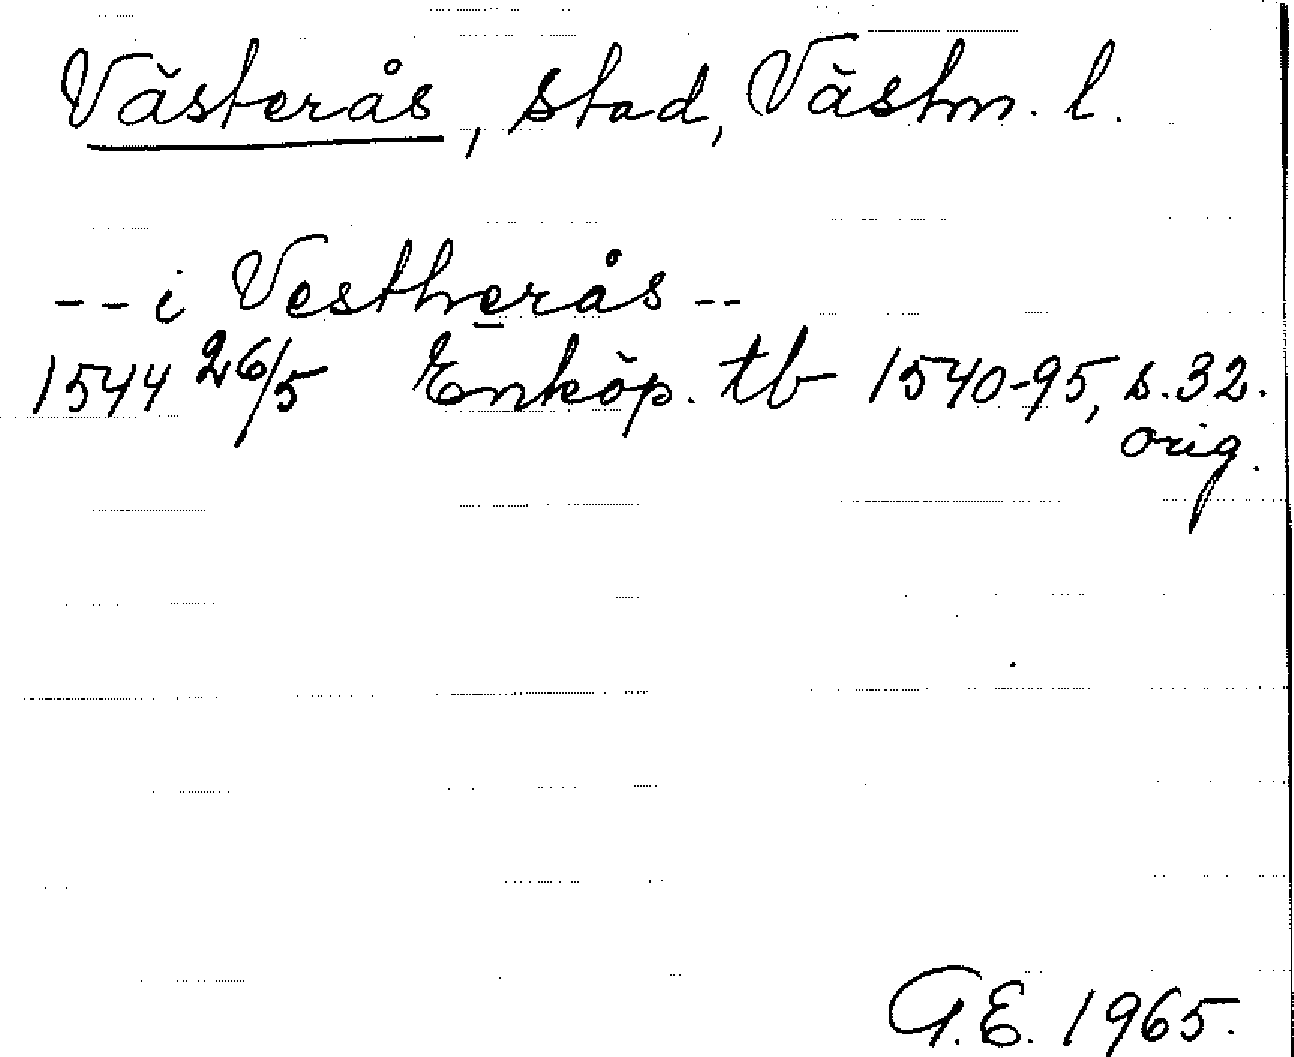 Västerås, stad, Västm. l.
-- i Vestherås --
1544 26/5 Enköp. tb 1540-95, s. 32.
orig.
G.E. 1965.